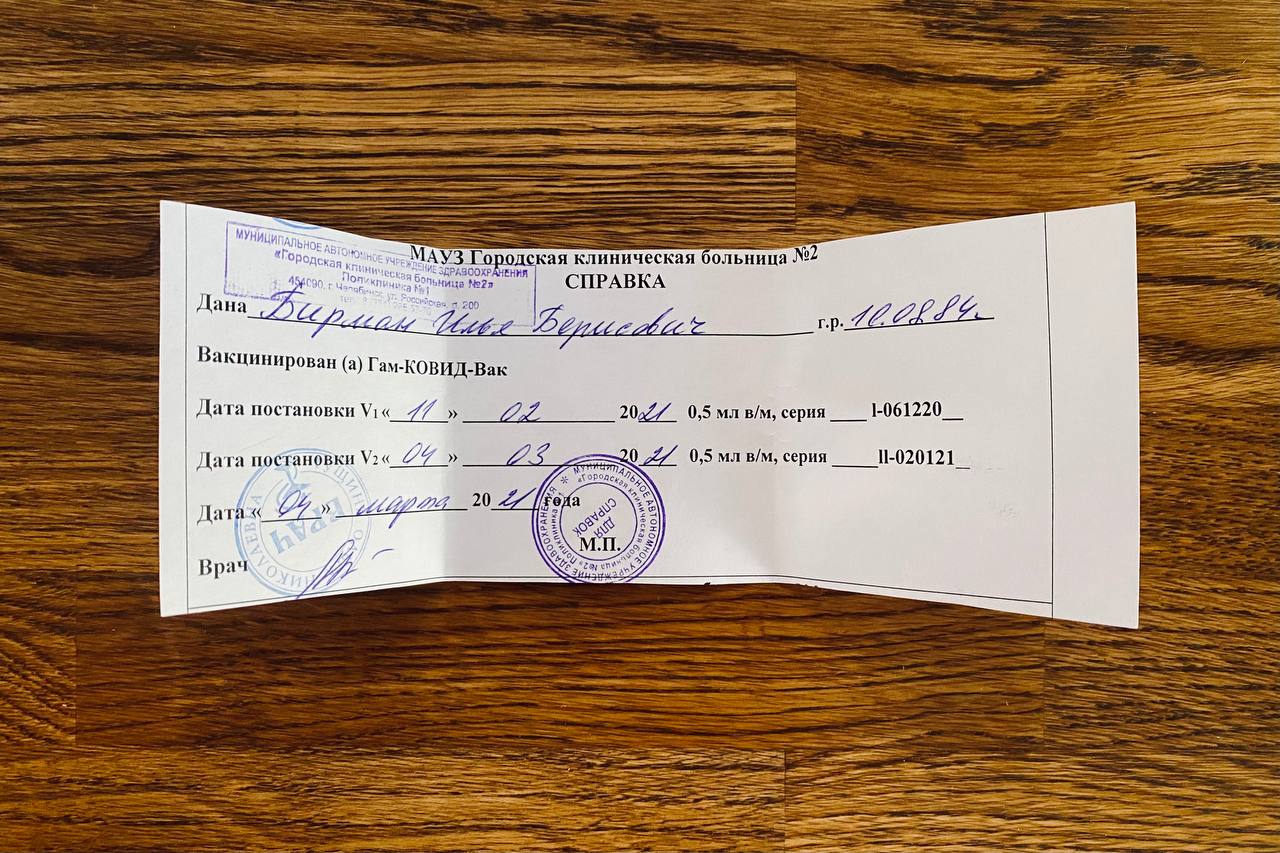 МУНИЦИПАЛЬНОЕ АВТОНОМНОЕ УЧРЕЖДЕНИЕ ЗДРАВООХРАНЕНИЯ
«Городская клиническая больница №2»
Поликлиника №1
454090, г. Челябинск, ул. Российская, д. 200
МАУЗ Городская клиническая больница №2
СПРАВКА
Дана Бирман Илья Борисович г.р. 10.08.84г.
Вакцинирован (а) Гам-КОВИД-Вак
Дата постановки V1 « 11 » 02 2021 0,5 мл в/м, серия ____l-061220__
Дата постановки V2 « 04 » 03 2021 0,5 мл в/м, серия ____ll-020121_
Дата « 04 » марта 20 21 года
Врач
М.П.
ВРАЧ
НИКОЛАЕВНА
МУНИЦИПАЛЬНОЕ АВТОНОМНОЕ УЧРЕЖДЕНИЕ ЗДРАВООХРАНЕНИЯ
«Городская клиническая больница №2» Поликлиника №1
ДЛЯ
СПРАВОК